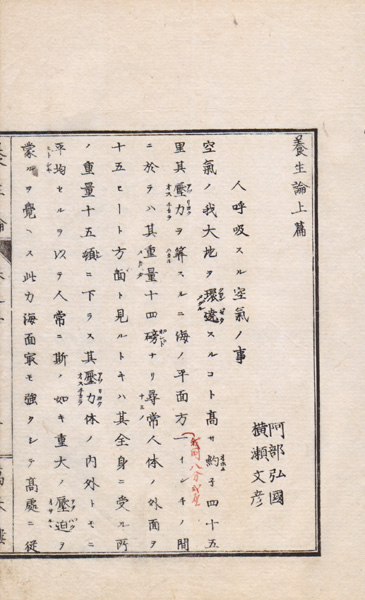 養生論上篇
阿部弘國
横瀬文彦
人呼吸スル空氣ノ事
空氣ノ我大地ヲ環遶スルコト高サ約子四十五
里其壓力ヲ算スルニ海ノ平面方一インチノ間
ニ於テハ其重量十四磅ナリ尋常人体ノ外面ヲ
十五セート方面ト見ルトキハ其全身ニ受ル所
ノ重量十五頓ニ下ラス其壓力体ノ内外トモニ
平均セルヲ以テ人常ニ斯ノ如キ重大ノ壓迫ヲ
蒙ルヲ覺ヘス此力海面最モ強クシテ高處ニ從